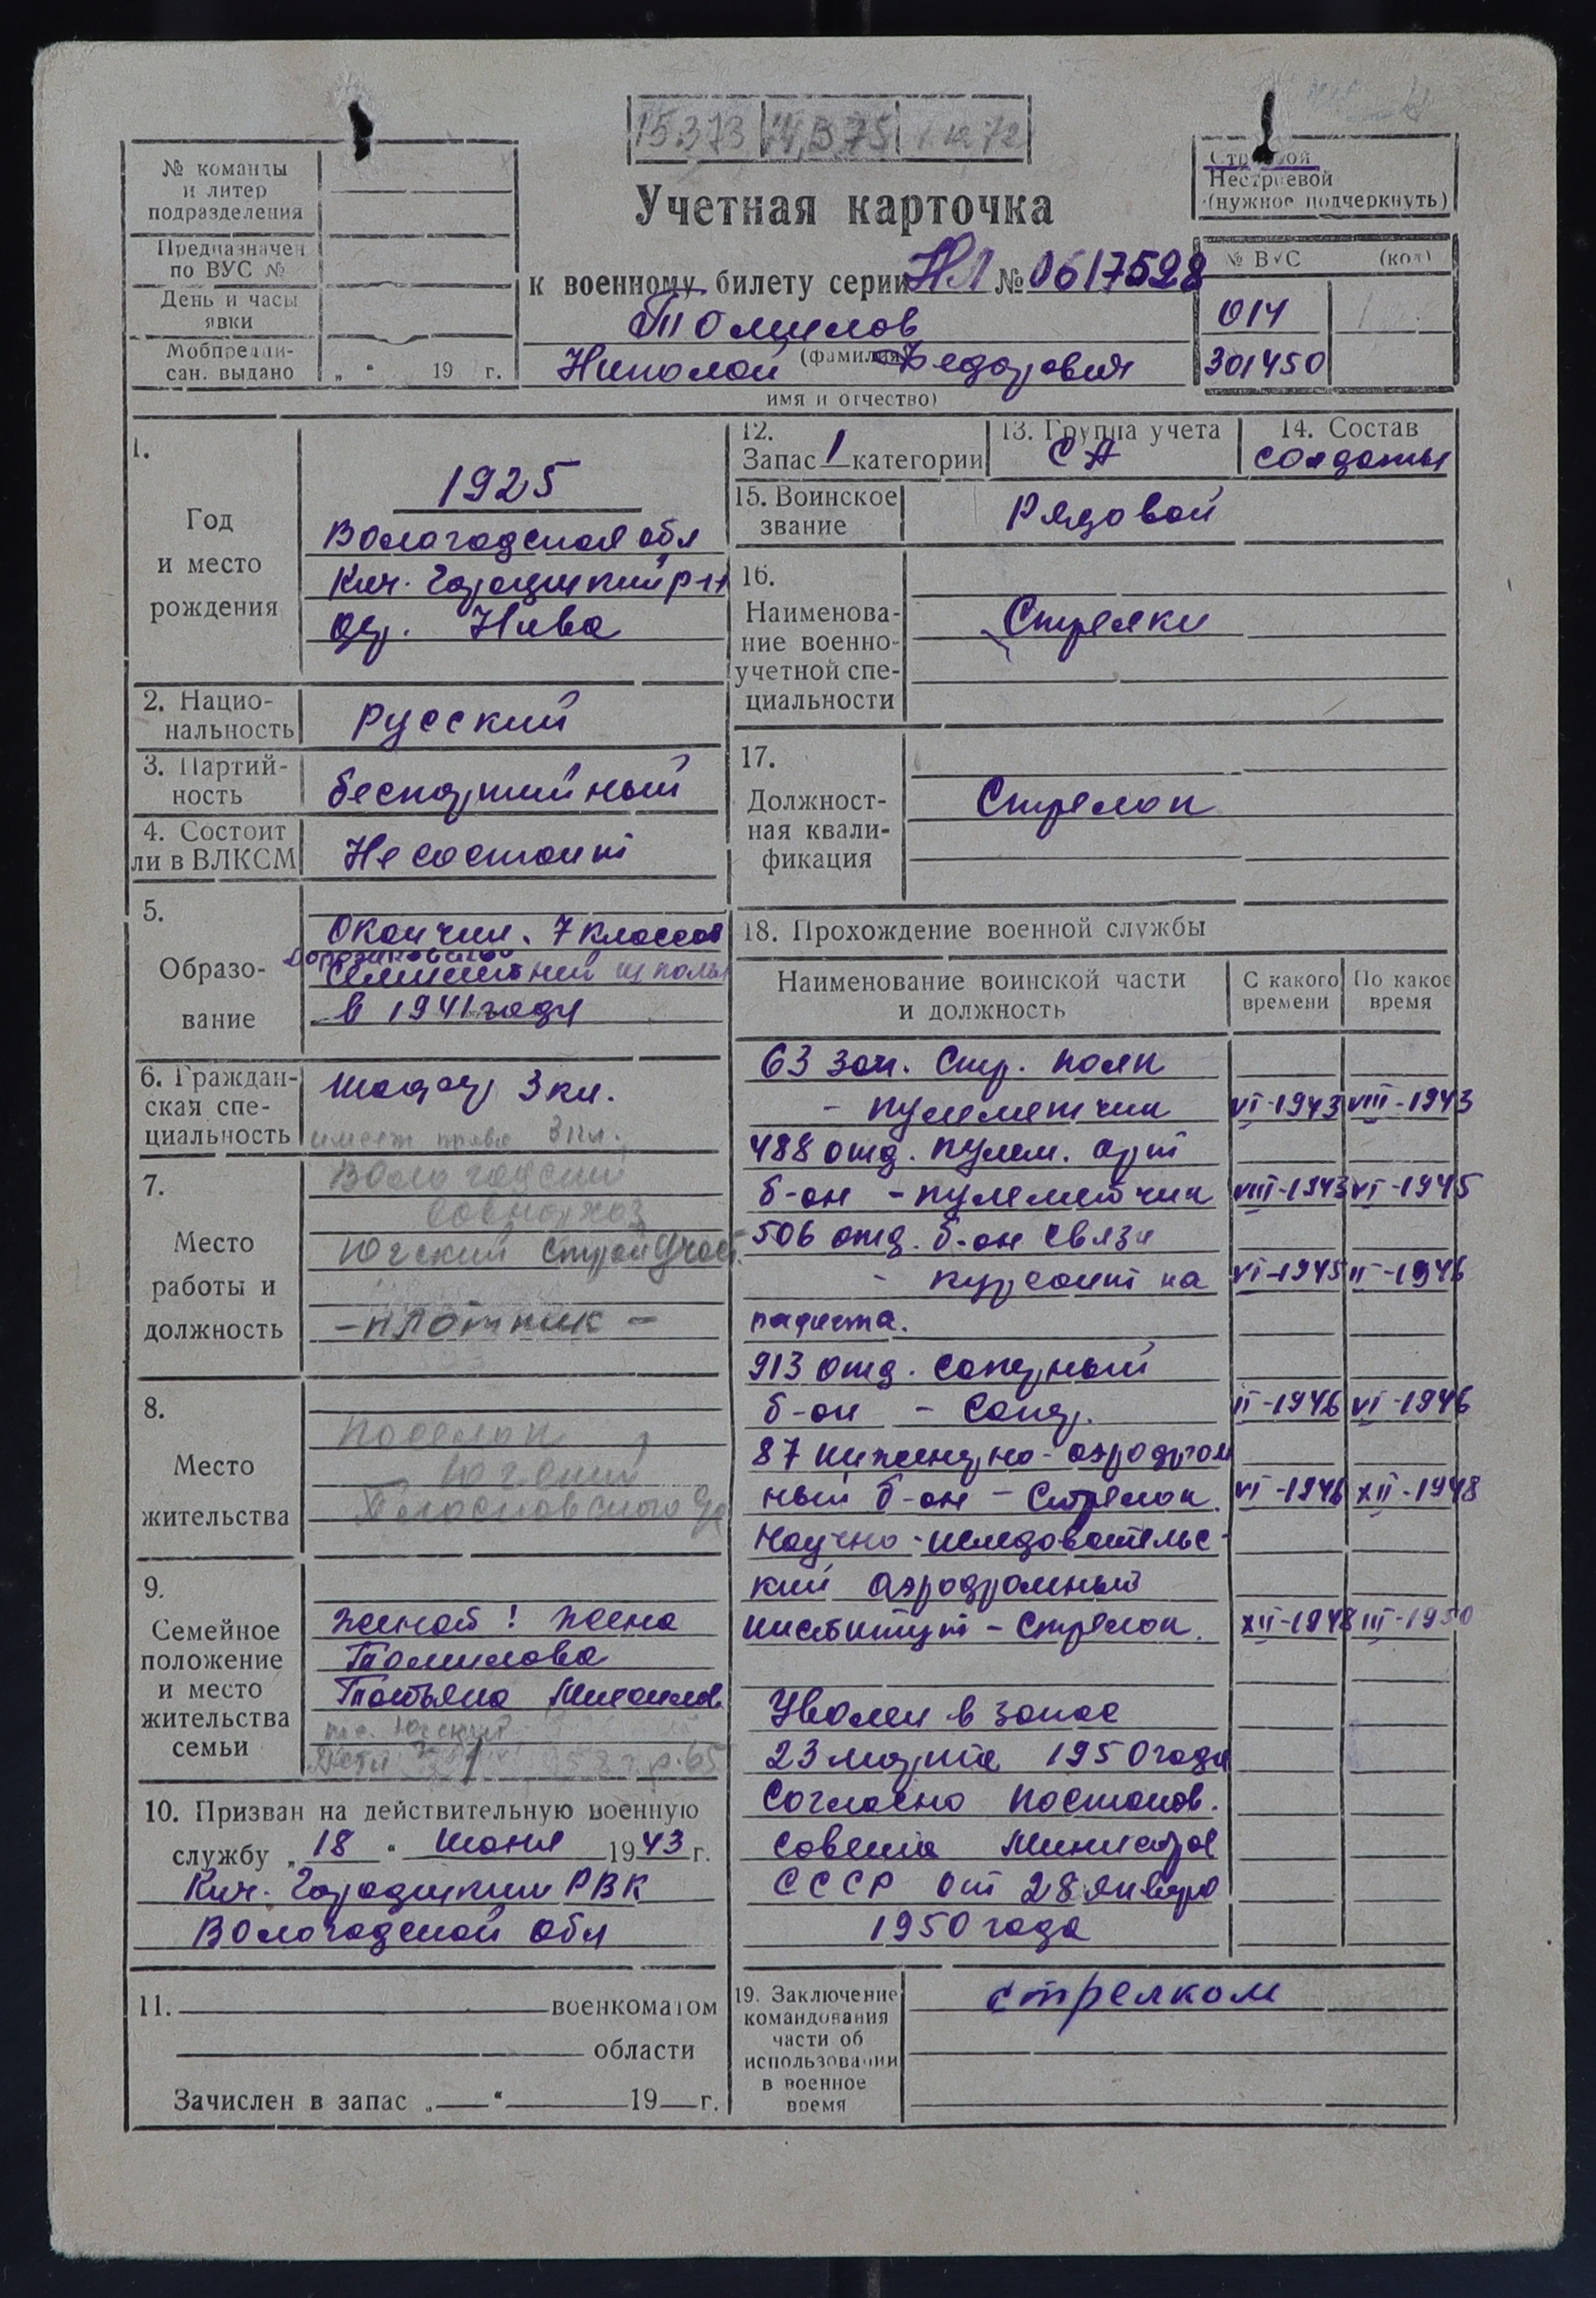 15.3.73 14.3.75
№ команды
и литер
подразделения
Предназначен
по ВУС №
День и часы
явки
Мобпредпи-
сан. выдано „ “ 19 г.
Учетная карточка
к военному билету серии НЛ № 0617528
Томилов
(фамилия)
Николай Федорович
имя и отчество)
Строевой
Нестроевой
(нужное подчеркнуть)
№ ВУС (код)
014
301450
1.
Год
и место
рождения
1925
Вологодская обл
Кич. Городецкий р-н
дер. Нива
2. Нацио-
нальность
Русский
3. Партий-
ность
беспартийный
4. Состоит
ли в ВЛКСМ
Не состоит
5.
Образо-
вание
Окончил. 7 классов
школы
в 1941 году
6. Граждан-
ская спе-
циальность
Шофер 3 кл.
имеет права 3 кл.
7.
Место
работы и
должность
Вологодский
совнархоз
Югский стройучаст.
– плотник –
8.
Место
жительства
Поселок
Югский
9.
Семейное
положение
и место
жительства
семьи
Женат! жена
Томилова
Татьяна Михайлов.
пос. Югский
Дети
10. Призван на действительную военную
службу „18“ июня 1943 г.
Кич. Городецким РВК
Вологодской обл
11. военкоматом
области
Зачислен в запас „ “ 19 г.
12.
Запас 1 категории
13. Группа учета
СА
14. Состав
солдаты
15. Воинское
звание
Рядовой
16.
Наименова-
ние военно-
учетной спе-
циальности
Стрелки
17.
Должност-
ная квали-
фикация
Стрелок
18. Прохождение военной службы
Наименование воинской части
и должность
С какого
времени
По какое
время
63 зап. Стр. полк
– пулеметчик VI-1943 VIII-1943
488 отд. пулем. арт
б-он – пулеметчик VIII-1943 VI-1945
506 отд. б-он связи
– курсант на VI-1945 II-1946
радиста.
913 отд. саперный
б-он – Сапер. II-1946 VI-1946
87 инженерно-аэродром
ный б-он – Стрелок. VI-1946 XII-1948
Научно-иследовательс-
кий аэродромный
институт – Стрелок. XII-1948 III-1950
Уволен в запас
23 марта 1950 года
Согласно постанов.
Совета Министров
СССР от 28 января
1950 года
19. Заключение
командования
части об
использовании
в военное
время
стрелком